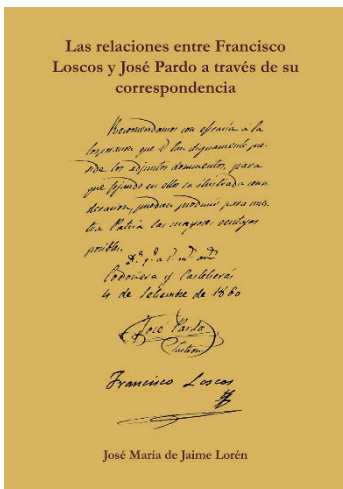 Las relaciones entre Francisco
Loscos y José Pardo a través de su
correspondencia
Recomendamos con eficacia a la
corporacion que V. tan dignamente pre-
side los adjuntos documentos, para
que fijando en ellos su ilustrada consi-
deracion, puedan producir para nues-
tra Patria las mayores ventajas
posibles.
D. g. a V. m. a.
Codoñera y Castelserás
4 de Setiembre de 1860
José Pardo
Sastrón
Francisco Loscos
José María de Jaime Lorén